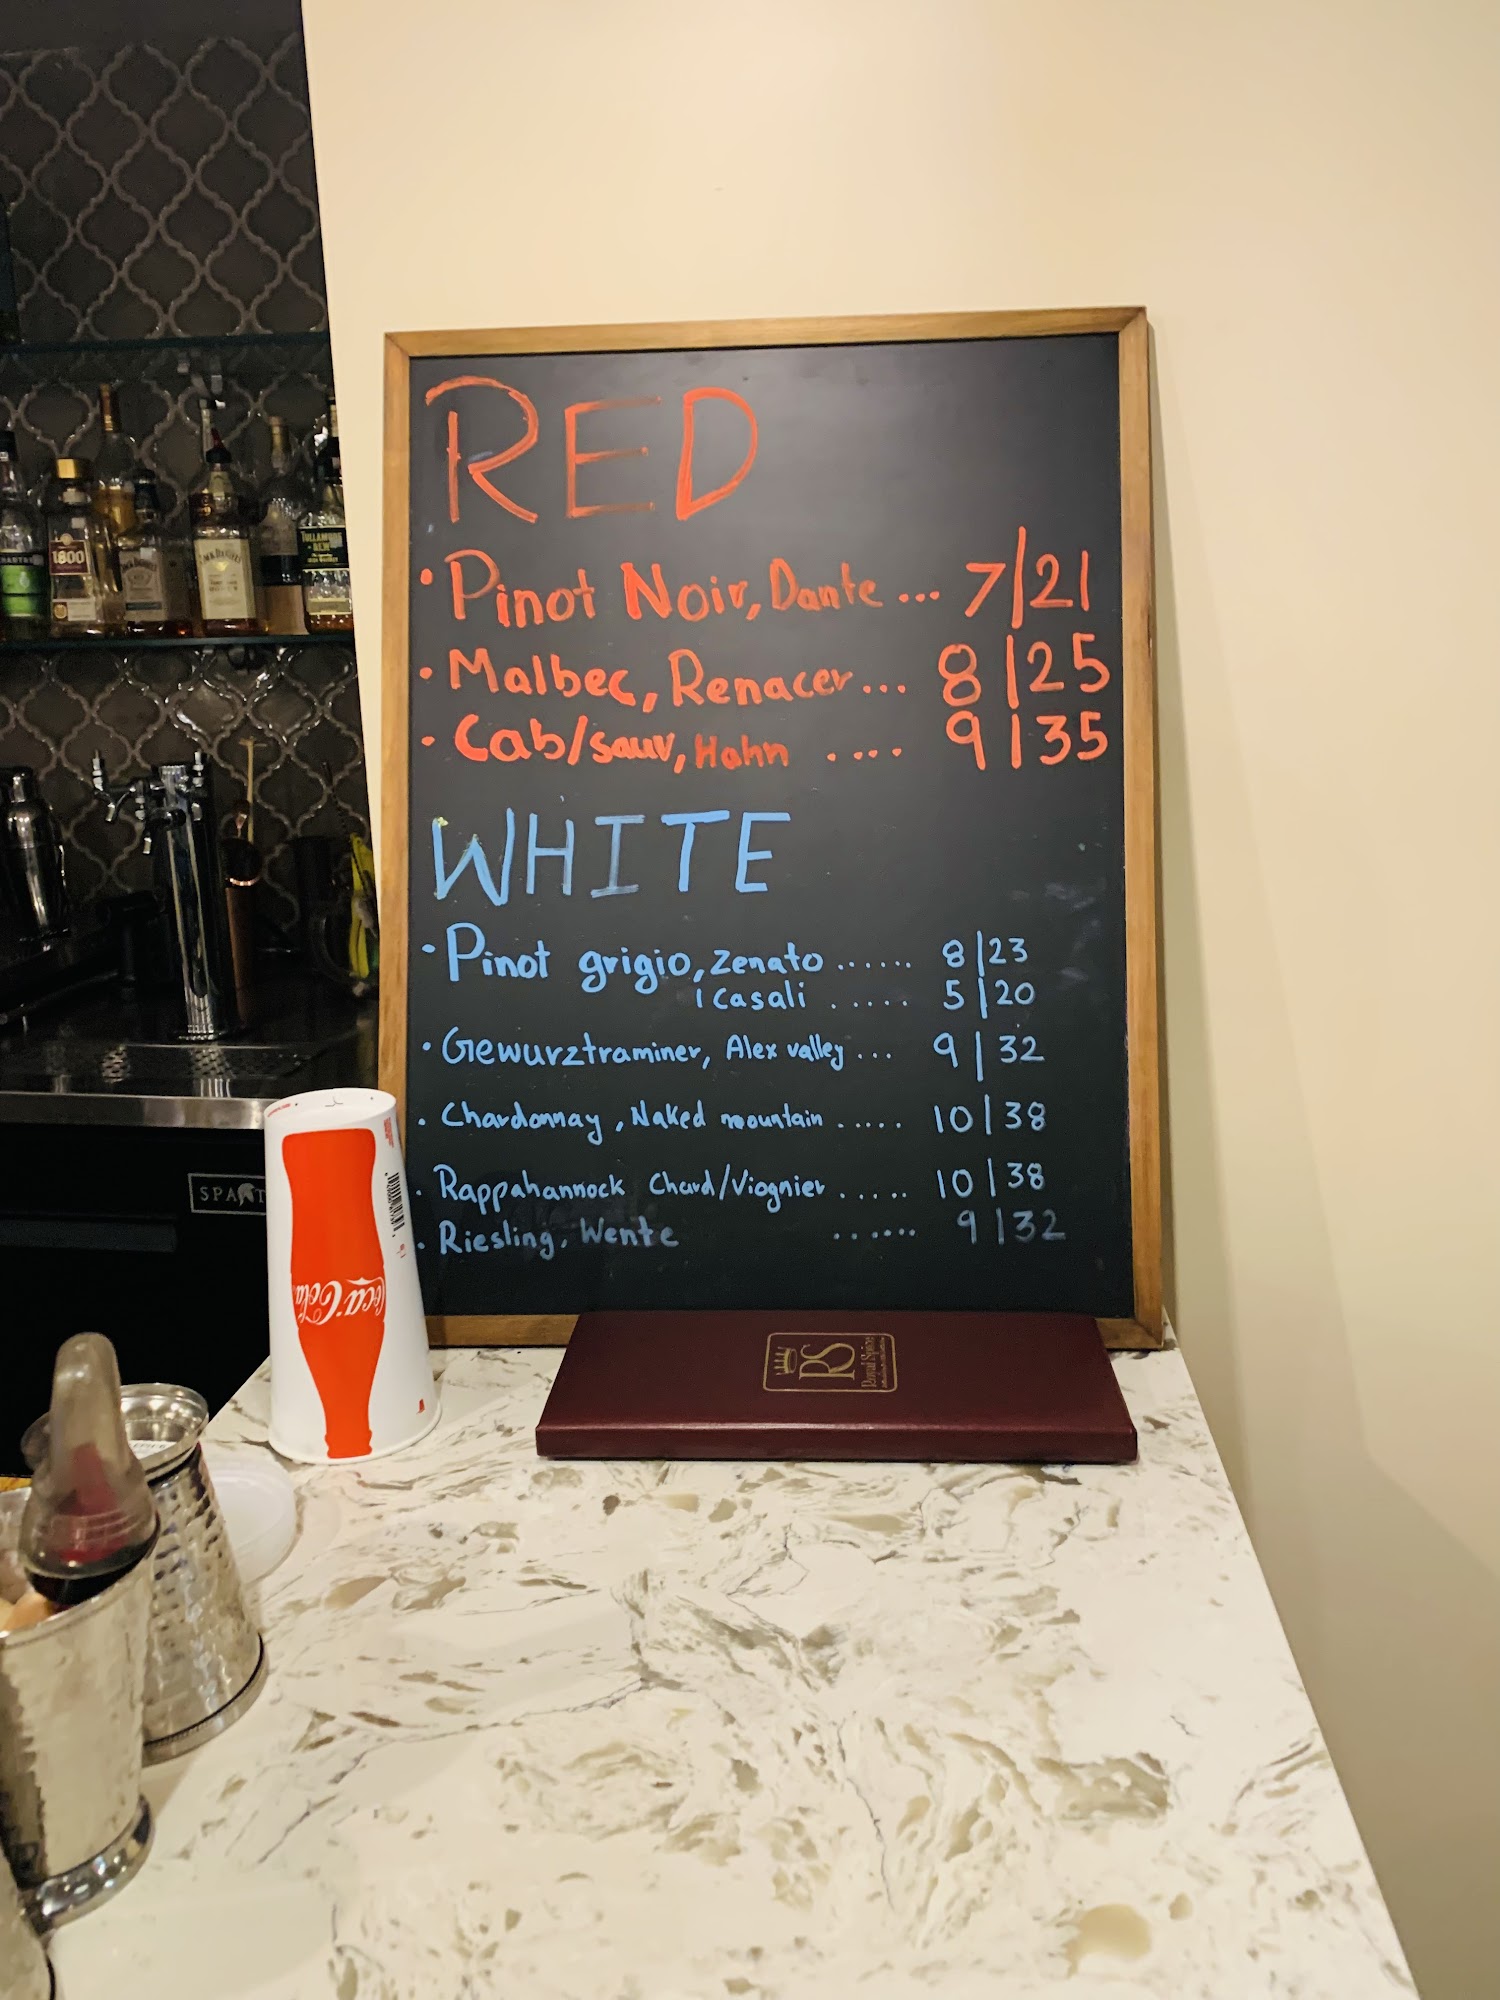 RED
• Pinot Noir, Dante ... 7/21
• Malbec, Renacer ... 8 | 25
• Cab/sauv, Hahn .... 9 | 35
WHITE
• Pinot grigio, Zenato ...... 8 | 23
i Casali ..... 5 | 20
• Gewurztraminer, Alex valley ... 9 | 32
. Chardonnay, Naked mountain ..... 10 | 38
. Rappahannock Chard/Viognier ..... 10 | 38
. Riesling, Wente ...... 9 | 32
1800
JACK DANIEL'S
TULLAMORE
DEW
Coca-Cola
RS
Royal Spice